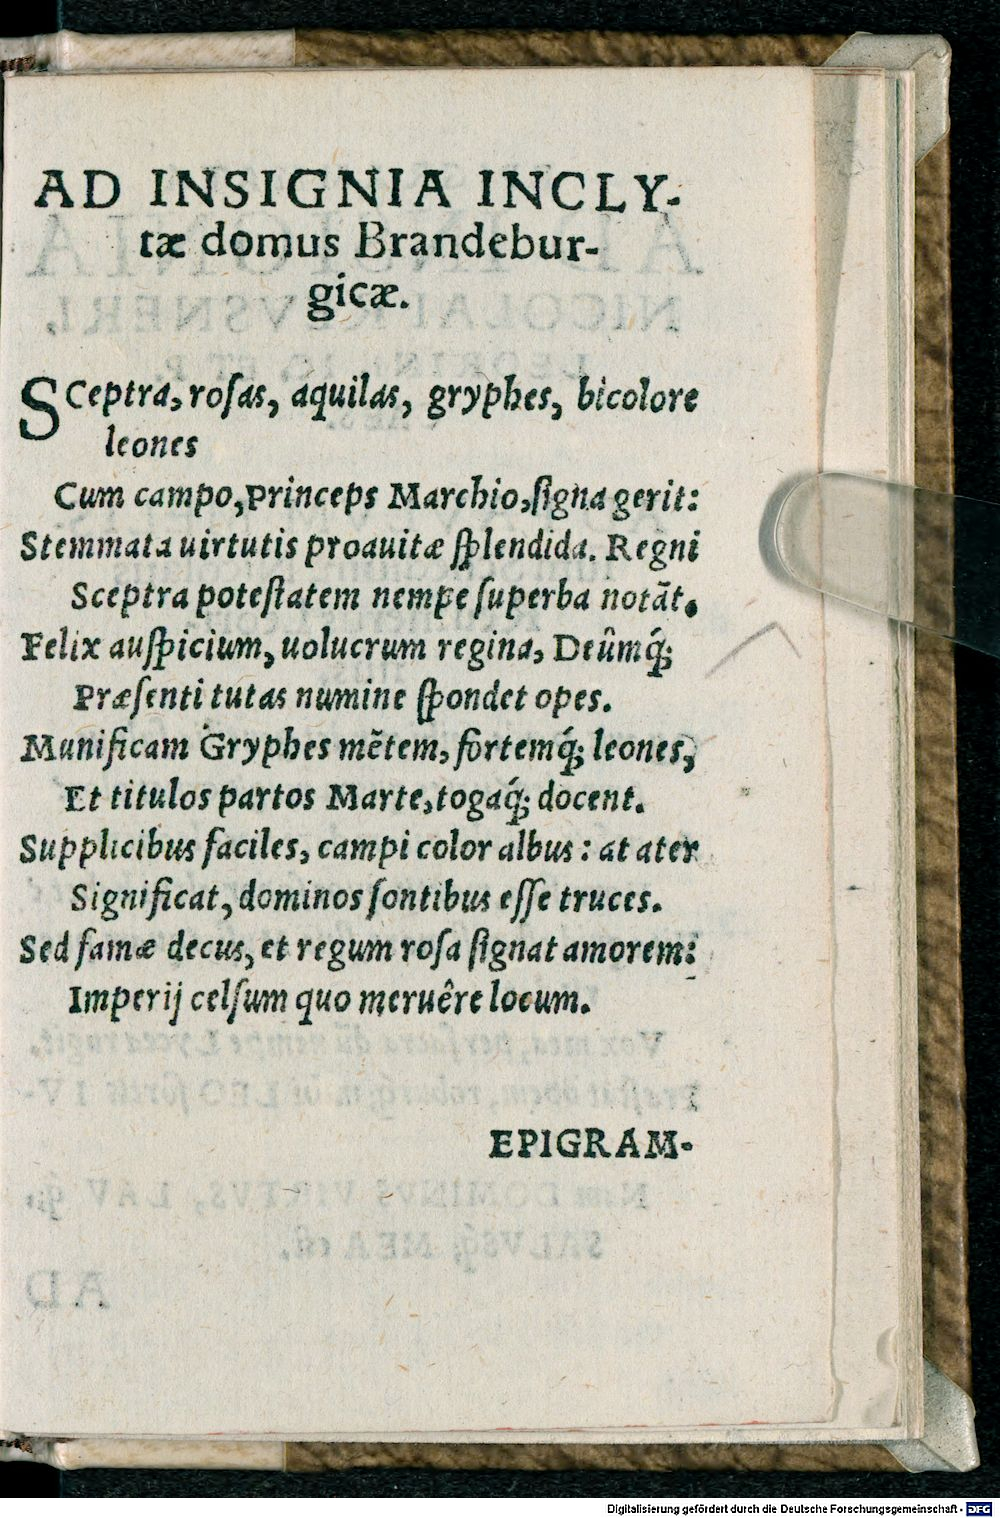 AD INSIGNIA INCLY-
tæ domus Brandebur-
gicæ.
SCeptra, roſas, aquilas, gryphes, bicolore
leones
Cum campo, Princeps Marchio, ſigna gerit:
Stemmata uirtutis proauitæ ſplendida. Regni
Sceptra poteſtatem nempe ſuperba notāt.
Felix auſpicium, uolucrum regina, Deûmq́;
Præſenti tutas numine ſpondet opes.
Munificam Gryphes mētem, fortemq́; leones,
Et titulos partos Marte, togaq́; docent.
Supplicibus faciles, campi color albus: at ater
Significat, dominos ſontibus eſſe truces.
Sed famæ decus, et regum roſa ſignat amorem:
Imperij celſum quo meruêre locum.
EPIGRAM-
Digitalisierung gefördert durch die Deutsche Forschungsgemeinschaft - DFG